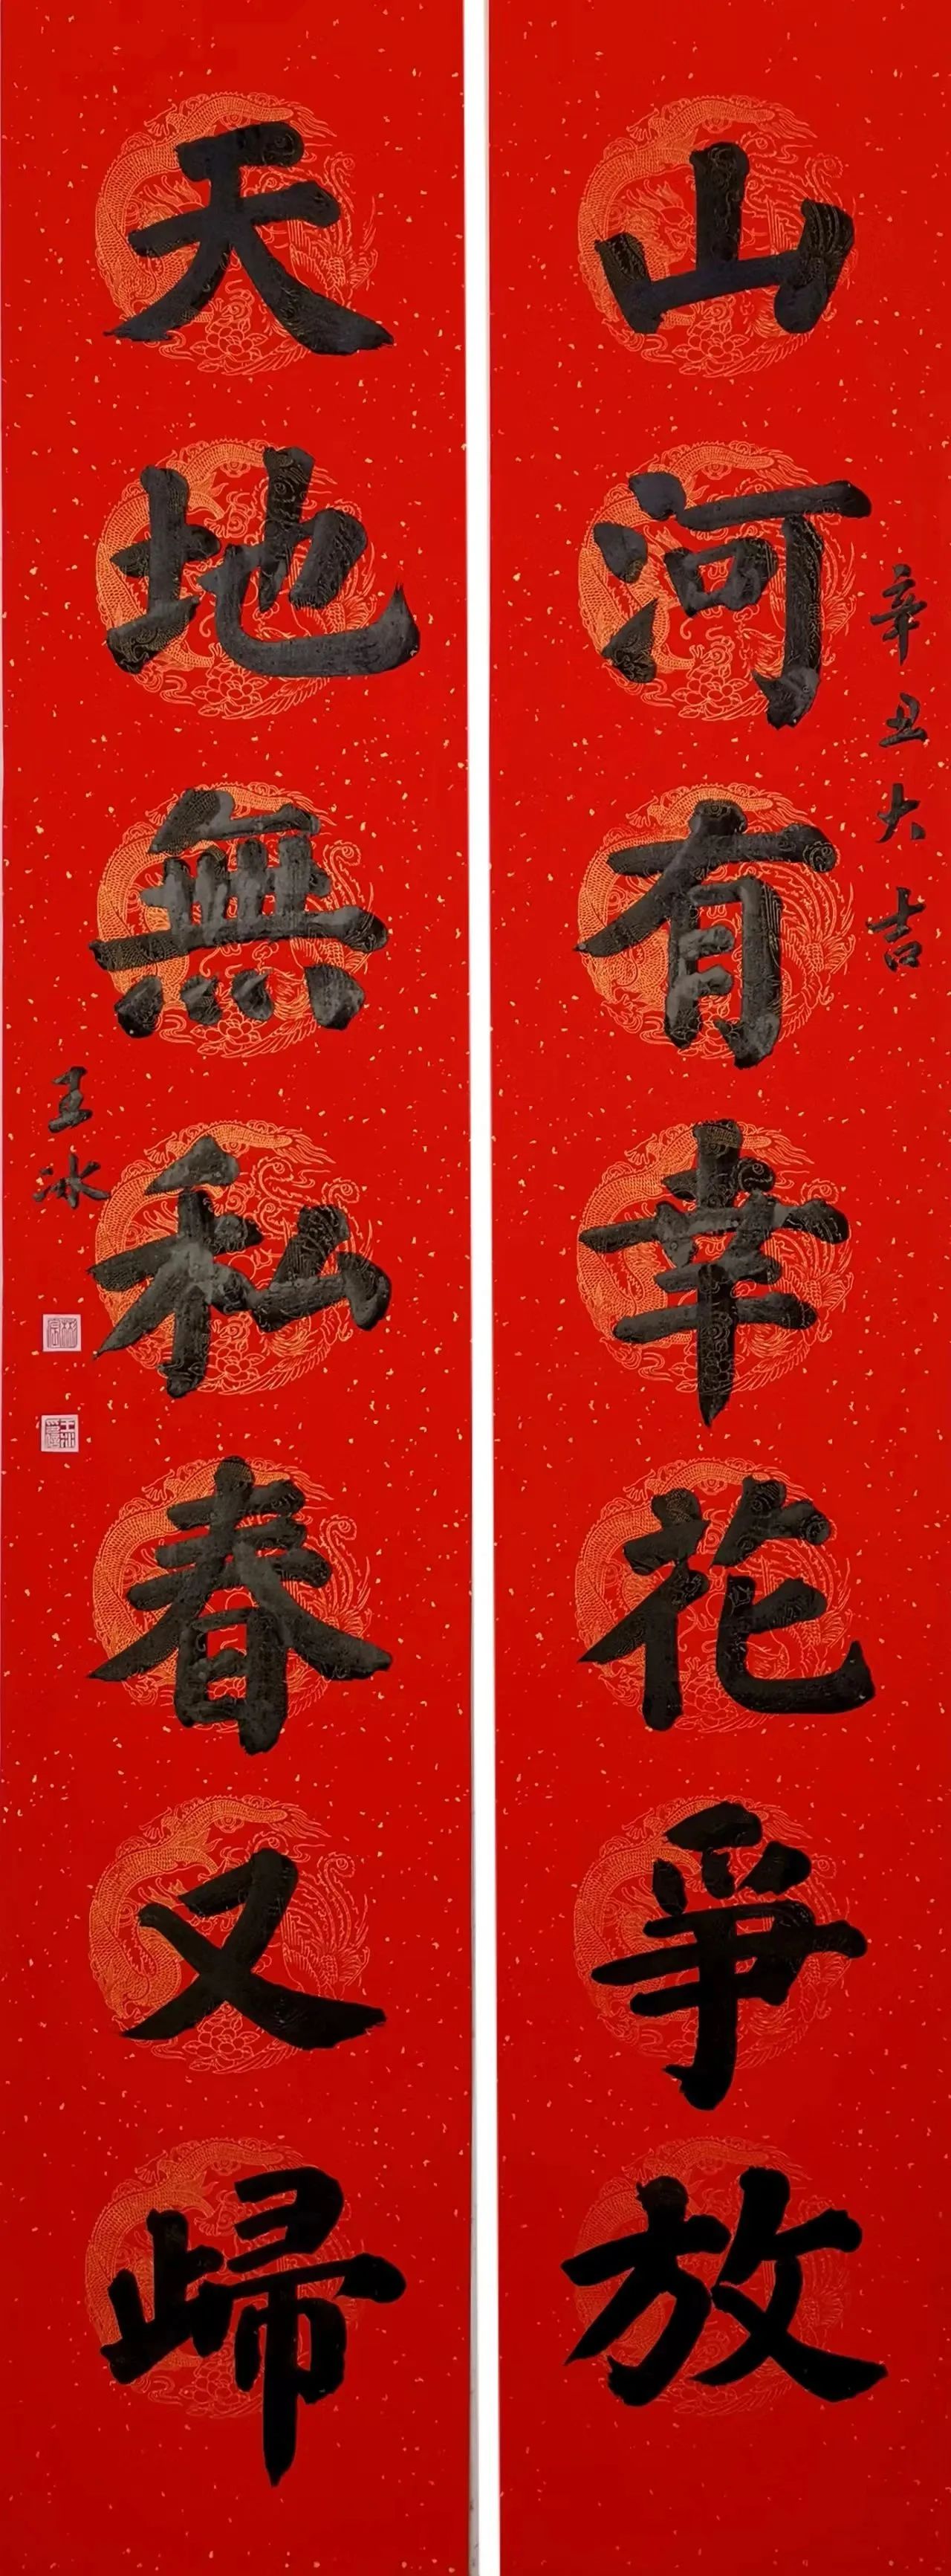 辛丑大吉
山河有幸花爭放
天地無私春又歸
王冰